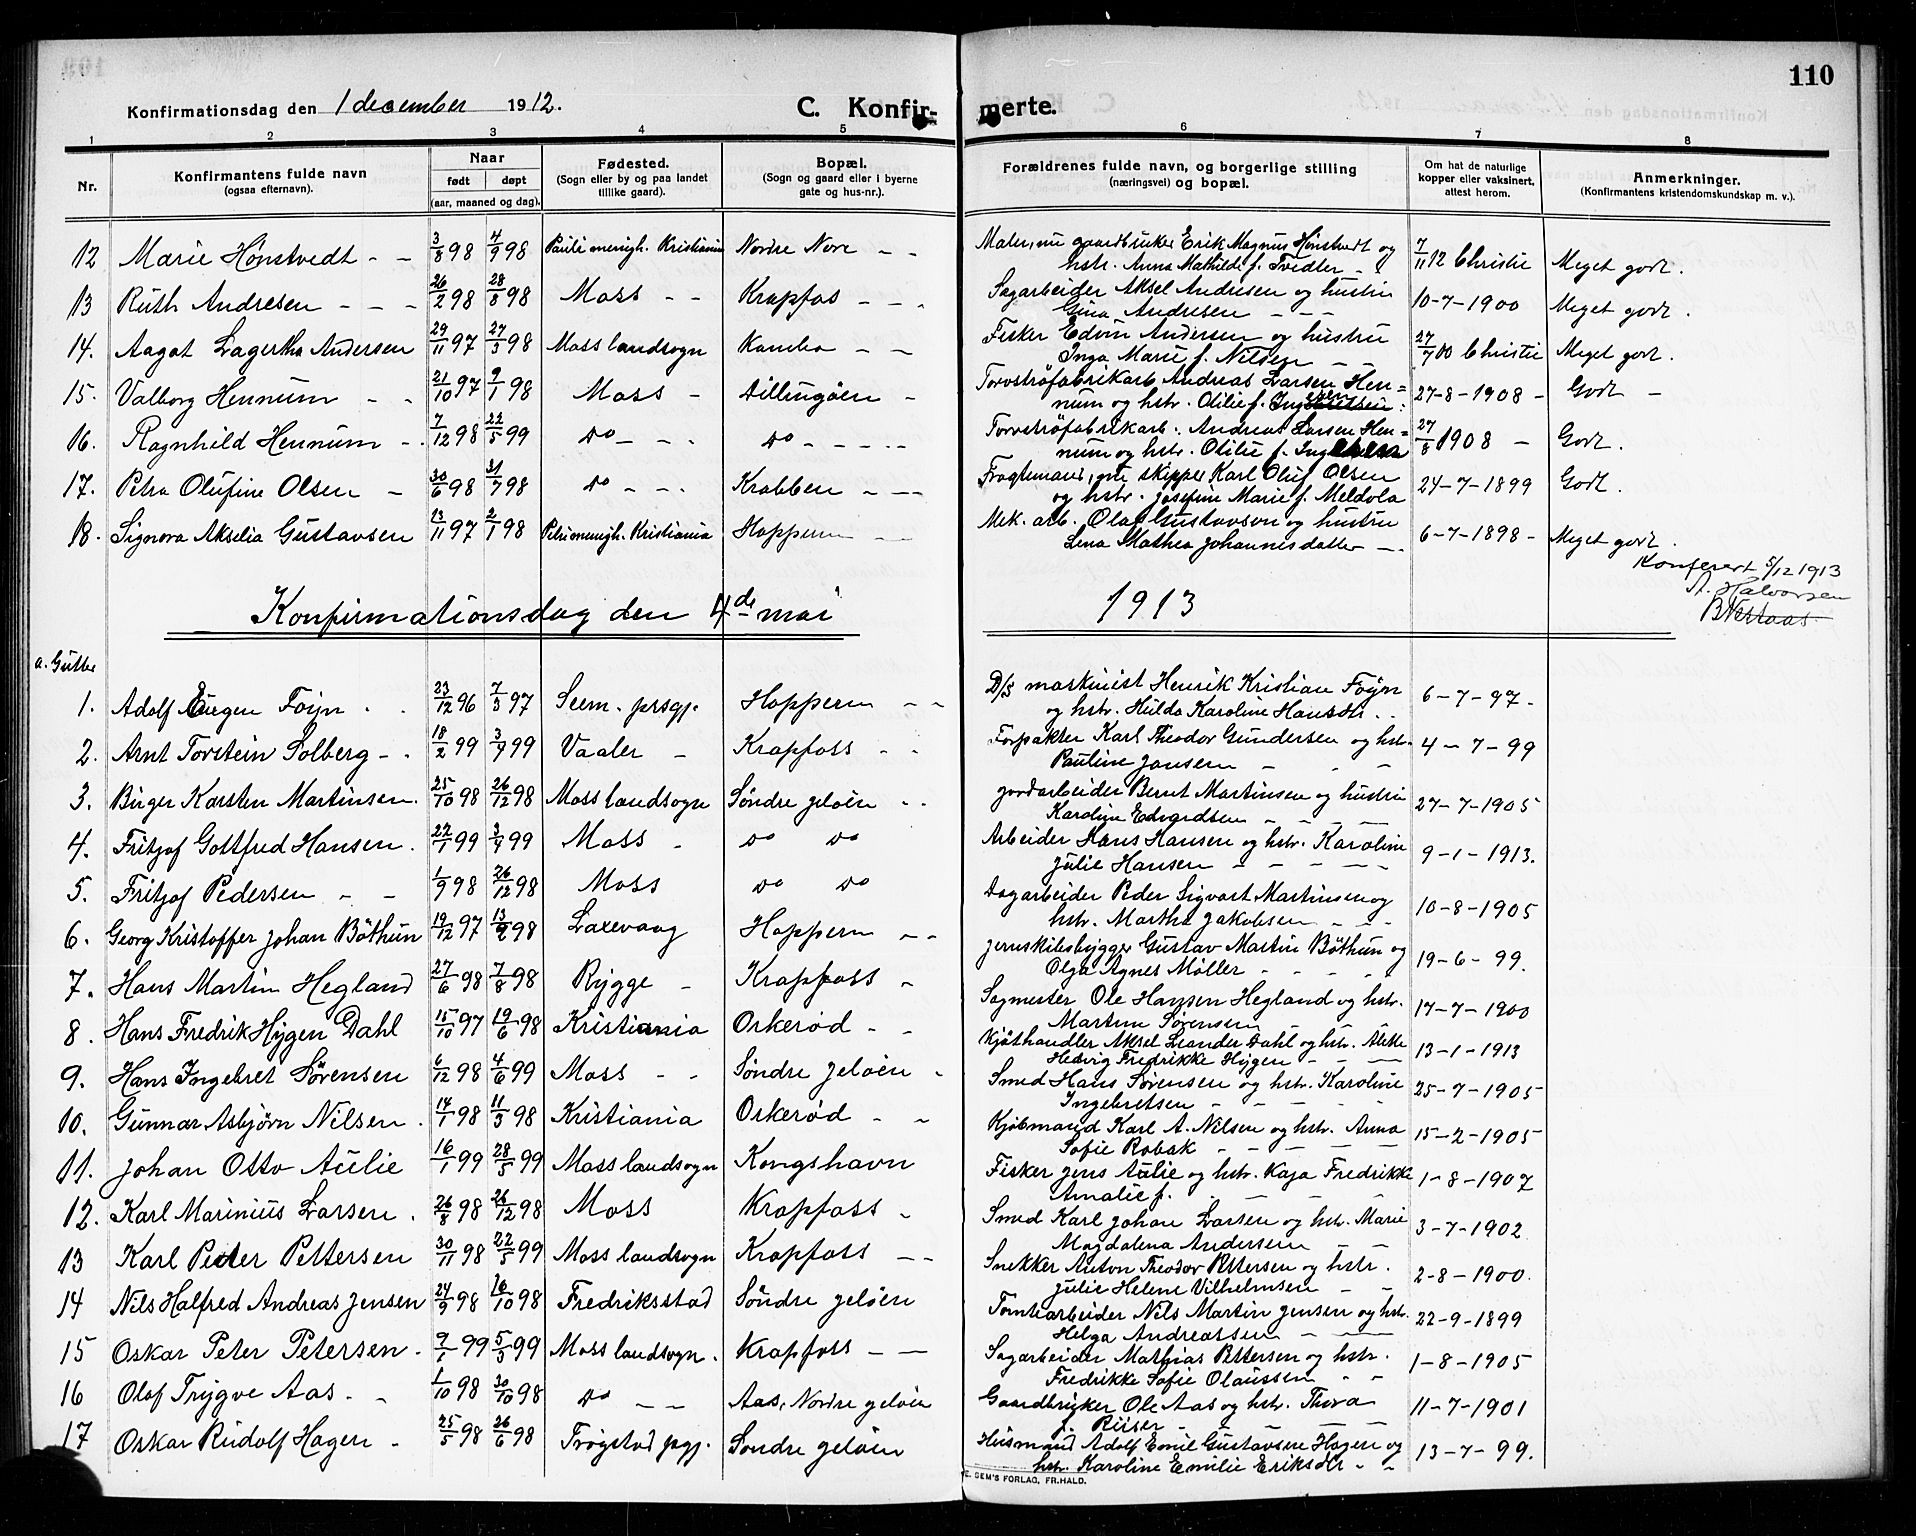 110
Konfirmationsdag den 1 december 1912.
C. Konfir- merte.
1 2 3 4 5 6 7 8
Nr. Konfirmantens fulde navn (ogsaa efternavn). Naar født døpt (aar, maaned og dag). Fødested. (Sogn eller by og paa landet tillike gaard). Bopæl. (Sogn og gaard eller i byerne gate og hus-nr.). Forældrenes fulde navn, og borgerlige stilling (næringsvei) og bopæl. Om hat de naturlige kopper eller vaksinert, attest herom. Anmerkninger. (Konfirmantens kristendomskundskap m. v.).
12 Marie Hønstvedt - - 3/8 98 4/9 98 Pauli menigh. Kristiania Nordre Nore - - Maler, nu gaardbruker Erik Magnus Hønstvedt og 7/11 12 Christie Meget godt.
hstr. Anna Mathilde f. Tvedter -
13 Ruth Andresen - - - 26/2 98 28/8 98 Moss - - Krapfos - - - Sagarbeider Aksel Andresen og hustru 10-7-1900 Meget godt.
Gina Andresen - - -
14. Aagot Lagertha Andersen 29/11 97 27/3 98 Moss landsogn Kambo - - Fisker Edvin Andersen og hustru 27/7 00 Christie Meget godt.
Inga Marie f. Nilsen - -
15. Valborg Hennum - - 21/10 97 9/1 98 Moss - Dillingøen - Torvströfabrikarb. Andreas Larsen Hen= 27-8-1908 - Godt -
num og hstr. Otilie f.
16. Ragnhild Hennum - . 7/12 98 22/5 99 Do - - - Do - - - - - Torvströfabrikarb. Andreas Larsen Hen= 27/8 1908 - Godt.
num og hstr. Otilie f.
17. Petra Olufine Olsen - 30/6 98 31/7 98 Do - - - Krabben - - - Fragtemand, nu skipper Karl Oluf Olsen 24-7-1899 Godt.
og hstr. Josefine Marie f. Meldola
18. Signora Akselia Gustavsen 13/11 97 2/1 98 Petri menigh. Kristiania Hoppern - Mek. arb. Olaf Gustavson og hustru 6-7-1898 - Meget godt.
Lena Mathea Johannisdatter - -
Konferert 5/12 1913
A. Halvorsen
Konfirmationsdag den 4de mai 1913
a. Gutter
1. Adolf Eugen Foyn . . 23/12 96 7/3 97 Seem. prsgj. Hoppern - - D/S maskinist Henrik Kristian Foyn 6-7-97.
og hstr. Hulda Karoline Hansdtr. . .
2. Arnt Torstein Solberg - . 18/2 99 3/4 99 Vaaler - Krapfoss - - Forpakter Karl Theodor Gundersen og hstr. 4-7-99
Pauline Jansen - - -
3. Birger Karsten Martinsen. 25/10 98 26/12 98 Moss landsogn Söndre geløen - - jordarbeider Bernt Martinsen og hustru 27-7-1905
Karoline Edvardsen - - -
4. Fritjof Gottfred Hansen . 22/1 99 3/4 99 Moss - Do Do Arbeider Hans Hansen og hstr. Karoline 9-1-1913.
Julie Hansen - - - - -
5. Fritjof Pedersen - - 1/9 98 26/12 98 Moss Do Do Dagarbeider Peder Sigvart Martinsen og 10-8-1905
hstr. Martha Jakobsen - - -
6. Georg Kristoffer Johan Böthun 19/12 97 13/2 98 Laxevaag Hoppern - - Jernskibsbygger Gustav Martin Böthun og 19-6-99.
Olga Agnes Møller - - - -
7. Hans Martin Hegland 27/6 98 7/8 98 Rygge - Krapfoss - Sagmester Ole Hansen Hegland og hstr. 17-7-1900
Martine Sørensen - - -
8. Hans Fredrik Hygen Dahl 15/10 97 19/6 98 Kristiania Orkerød - - Kjøthandler Aksel Leander Dahl og hstr. Alette 13-1-1913
Hedvig Fredrikke Hygen - - -
9. Hans Ingebret Sørensen 6/12 98 4/6 99 Moss - - Söndre geløen - Smed Hans Sørensen og hstr. Karoline 25-7-1905
Ingebretsen - - - - -
10. Gunnar Asbjörn Nilsen . 14/1 98 11/3 98 Kristiania Orkerød - - Kjøbmand Karl A. Nilsen og hstr. Anna 15-2-1905
Sofie Robak - - -
11. Johan Otto Aulie 16/1 99 28/5 99 Moss landsogn Kongshavn Fisker Jens Aulie og hstr. Kaja Fredrikke 1-8-1907
Amalie f. - - - -
12. Karl Marinius Larsen . 26/8 98 26/12 98 Moss Krapfoss - Smed Karl Johan Larsen og hstr. Marie 3-7-1902
Magdalena Andersen - -
13 Karl Peter Pettersen 30/11 98 22/5 99 Moss landsogn Krapfoss - - Snekker Anton Theodor Pettersen og hstr. 2-8-1900.
Julie Helene Vilhelmsen - -
14 Nils Halfred Andreas Jensen 24/9 98 16/10 98 Fredriksstad Söndre geløen Tomtearbeider Nils Martin Jensen og hstr. 22-9-1899
Helga Andreassen - -
15 Oskar Peter Petersen . 9/1 99 5/3 99 Moss landsogn . Krapfoss - - Sagarbeider Mathias Pettersen og hstr. 1-8-1905
Fredrikke Sofie Olaussen - -
16 Olaf Trygve Aas - - 1/10 98 30/10 98 Do - - Aas, Nordre geløen Gaardbruker Ole Aas og hstr. Thora 11-7-1901
f. Riiser - - - -
17 Oskar Rudolf Hagen - 25/5 98 26/6 98 Trøgstad pgj. Söndre geløen Husmand Adolf Emil Gustavsen Hagen og 13-7-99.
hstr. Karoline Emilie Eriksdtr - -
E. SEM'S FORLAG, FR.HALD.